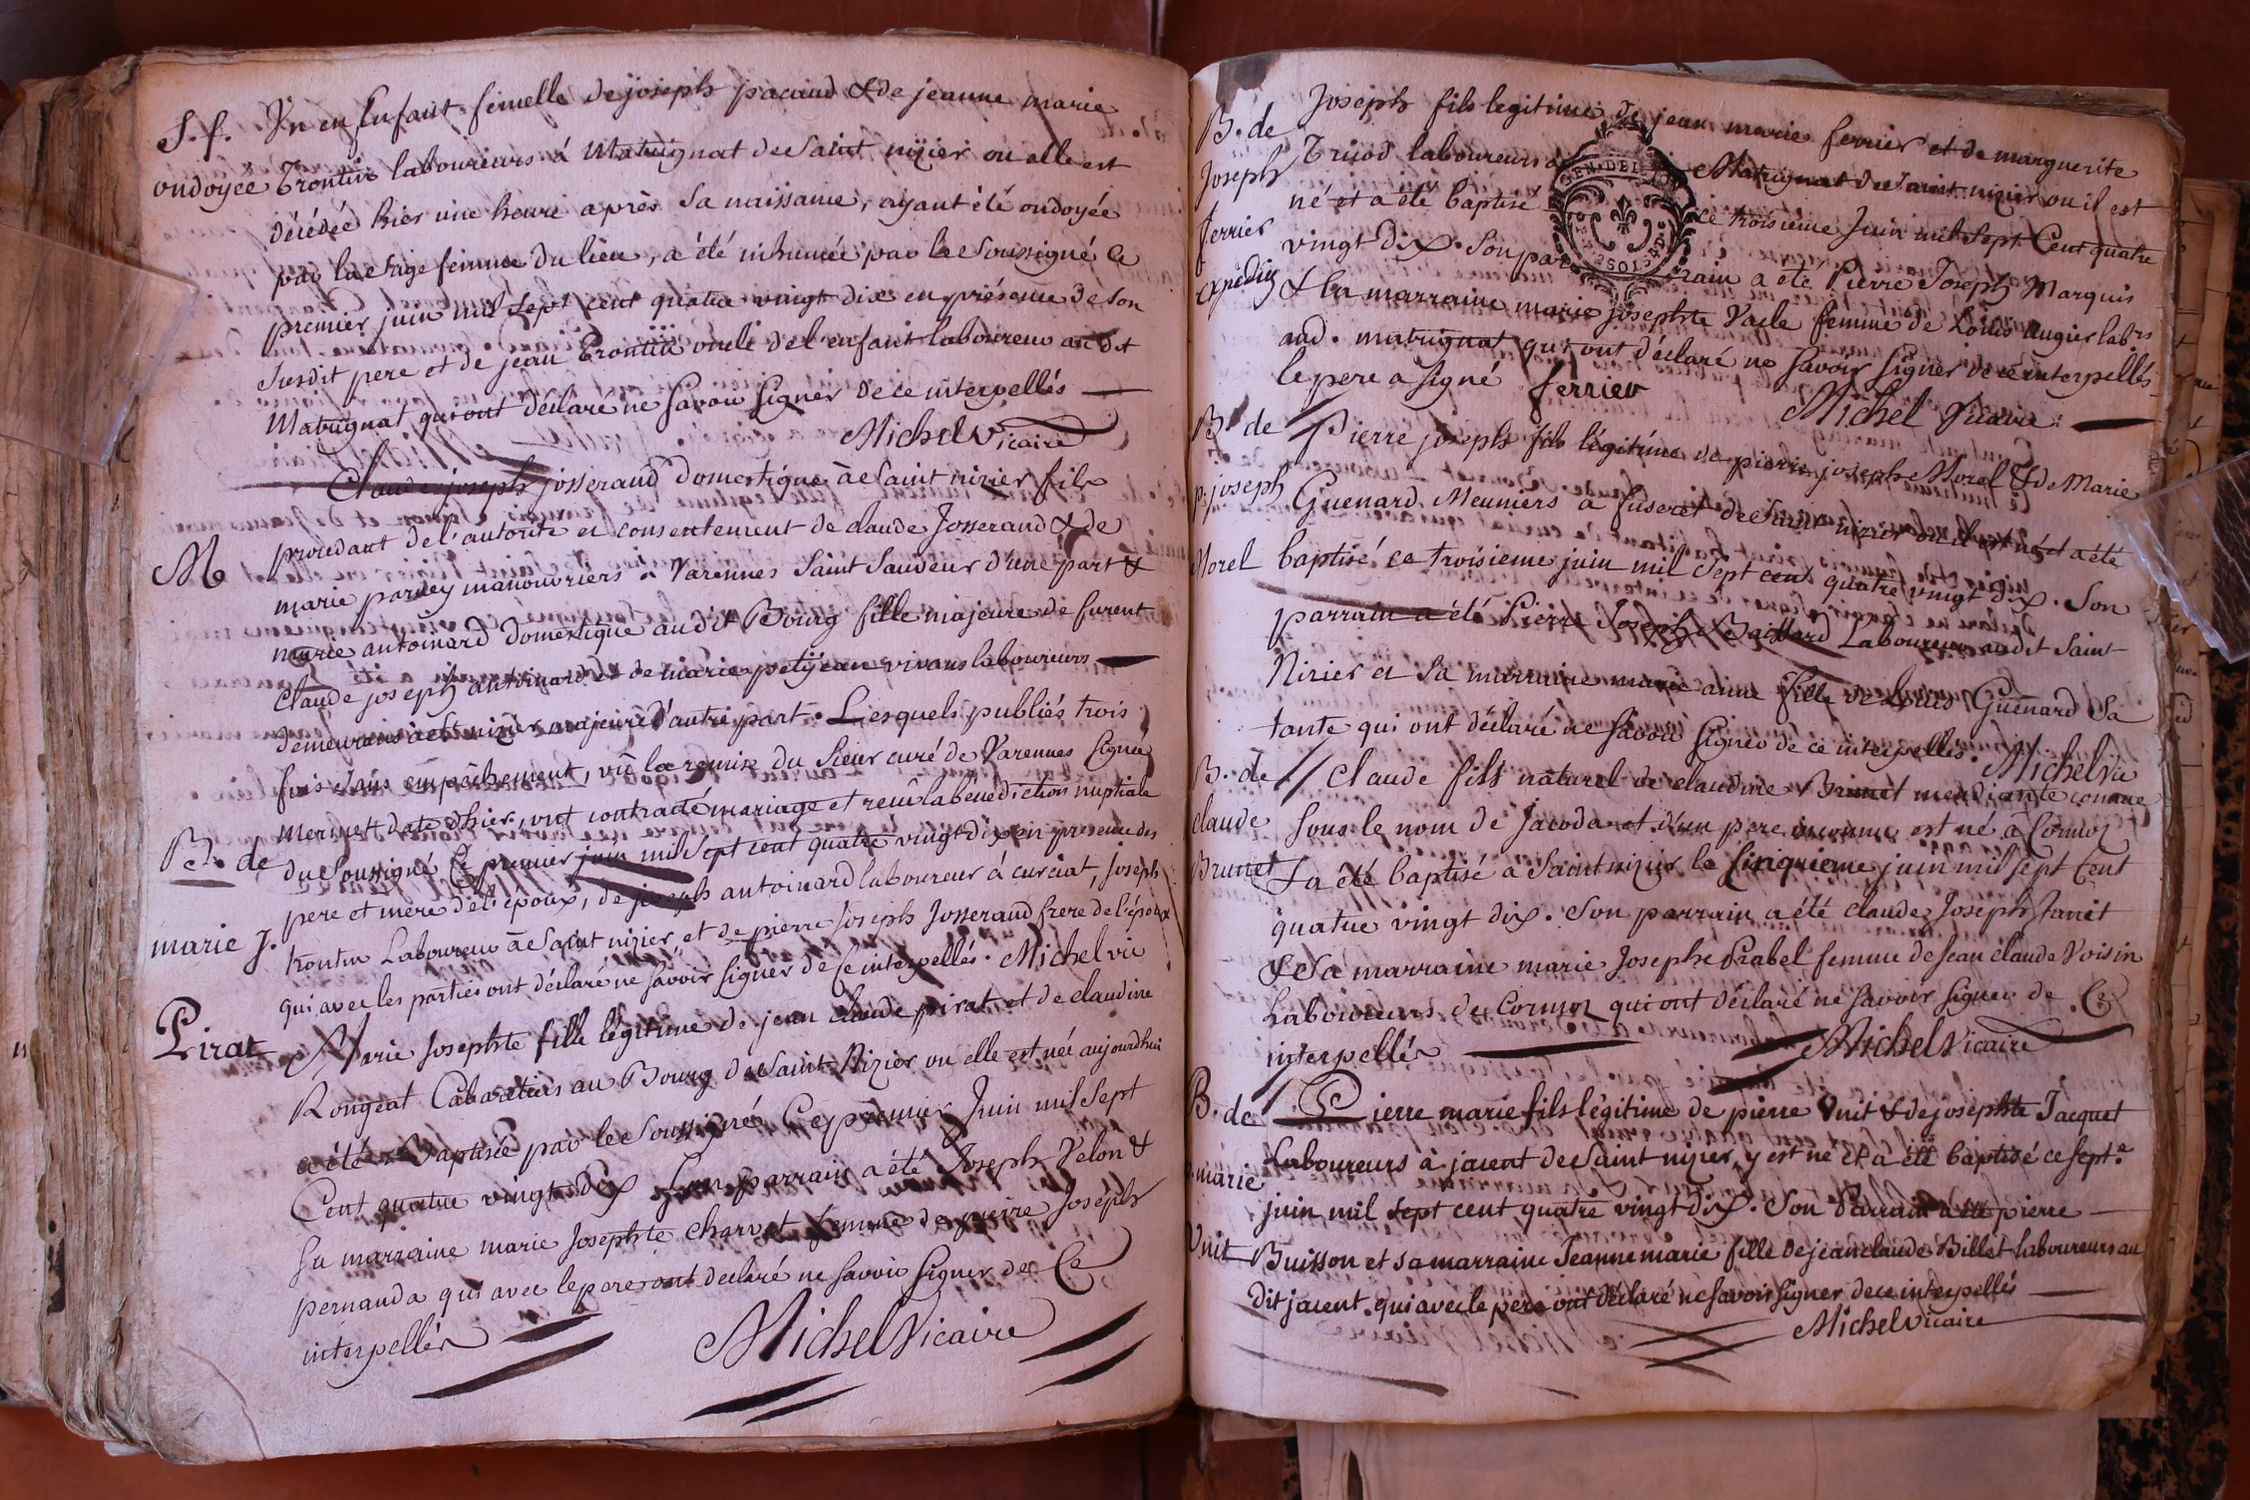 S. f.
ondoyée
un enfant femelle de joseph pacaud & de jeanne marie
Trontin laboureurs à Matrignat de Saint nizier où elle est
décédée hier une heure après sa naissance, ayant été ondoyée
par la sage femme du lieu, a été inhumée par le soussigné ce
premier juin mil sept cent quatre vingt dix en présence de son
susdit pere et de jean Trontin oncle de l'enfant laboureur au dt
Matrignat qui ont déclaré ne savoir signer de ce interpellés
Michel Vicaire
M
Claude joseph josserand domestique à Saint nizier fils
procedant de l'autorité et consentement de claude Josserand & de
marie manouvriers à Varennes Saint Sauveur d'une part &
marie antoinard domestique au dit Bourg fille majeure de furent
Claude joseph antoinard et de marie petijean vivans laboureurs
demeurans à St nizier majeure d'autre part. Lesquels publiés trois
fois sans empêchement, vû la remise du Sieur curé de Varennes signée
en date d'hier, ont contracté mariage et reçu la bénédiction nuptiale
du Soussigné Ce premier juin mil Sept cent quatre vingt dix en presence des
pere et mere de l'époux, de joseph antoinard laboureur à curciat, Joseph
trontin Laboureur à Saint nizier, et de pierre Joseph Josserand frere de l'époux
qui avec les parties ont déclaré ne savoir signer de ce interpellés. Michel vic
B. de
marie J.
Pirat
Marie Josephte fille légitime de jean claude pirat et de claudine
Rongeat Cabaretiers au Bourg de Saint Nizier ou elle est née aujourdhui
a été Baptisée par le Soussigné Ce premier Juin mil Sept
Cent quatre vingt dix Son parrain a été Joseph Velon &
Sa marraine marie Josephte charvet femme de pierre Joseph
pernanda qui avec le pere ont declaré ne savoir signer de Ce
interpellés
Michel Vicaire
B. de
Joseph
ferrier
expedié
Joseph fils legitime de jean marie ferrier et de marguerite
laboureurs à Matrignat de Saint nizier ou il est
né et a été baptisé ce troisieme Juin mil Sept Cent quatre
GEN. DE
SOLS
vingt dix. Son parrain a été Pierre Joseph Marquis
& La marraine marie josephte femme de Louis augier labrs
aud. matrignat qui ont déclaré ne savoir signer de ce interpellés
le pere a signé ferrier
Michel Vicaire
B. de
p. joseph
Morel
Pierre joseph fils légitime de pierre joseph Morel & de Marie
Guenard Meuniers à fuseret de Saint nizier où il est né et a été
baptisé ce troisieme juin mil Sept cent quatre vingt dix. Son
parrain a été Pierre Joseph Baillard Laboureur audt Saint
Nizier et Sa marraine marie anne fille de Louis Guenard Sa
tante qui ont déclaré ne savoir signer de ce interpellés. Michel vic
B. de
claude
Brunet
Claude fils naturel de claudine Brunet mendiante connue
sous le nom de Jacoda et d'un pere inconnu est né à Cormoz
& a été baptisé à Saint nizier le Cinquieme juin mil sept Cent
quatre vingt dix. Son parrain a été claude Joseph Janet
& Sa marraine marie Josephe Prabel femme de Jean claude Voisin
Laboureurs de Cormoz qui ont déclaré ne savoir signer de Ce
interpellés
Michel Vicaire
B. de
p. marie
Vuit
Pierre marie fils légitime de pierre Vuit & de josephte Jacquet
Laboureurs à jacent de Saint nizier, y est né et a été baptisé ce sept.e
juin mil sept cent quatre vingt dix. Son Parrain a été pierre
Buisson et sa marraine Jeanne marie fille de jean claude Billet laboureurs au
dit jacent. qui avec le pere ont déclaré ne savoir signer de ce interpellés
Michel vicaire